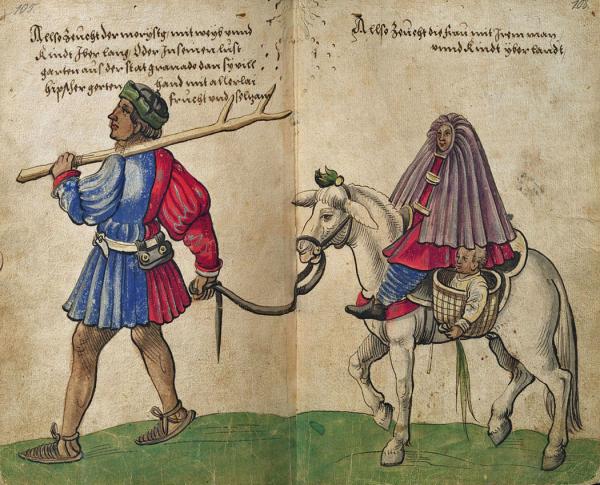 105
Allso Zeucht der morysch mit weyb vnnd
Kindt Jber lang Oder Jn seinen lust
garten aus der stat granade dan sy vill
hipscher gerten hand mit allerlai
frucht vnd
106
Allso Zeucht die frau mit Jrem man
vnnd Kindt yber landt